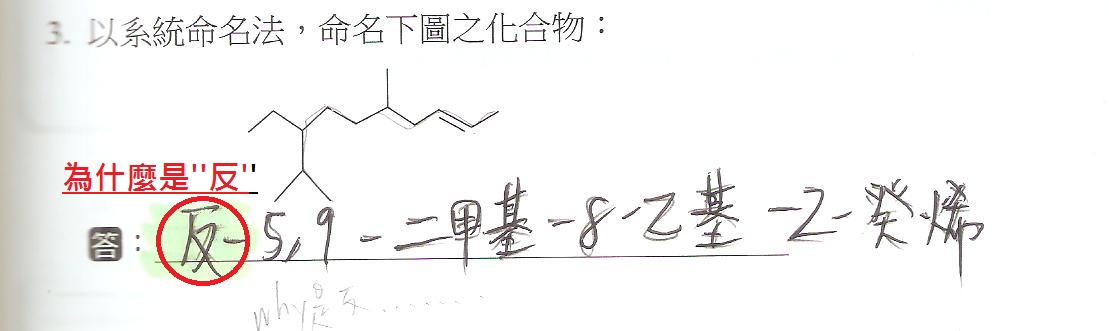 3. 以系統命名法，命名下圖之化合物：
為什麼是''反''
答：反-5,9-二甲基-8-乙基-2-癸烯
why是反........